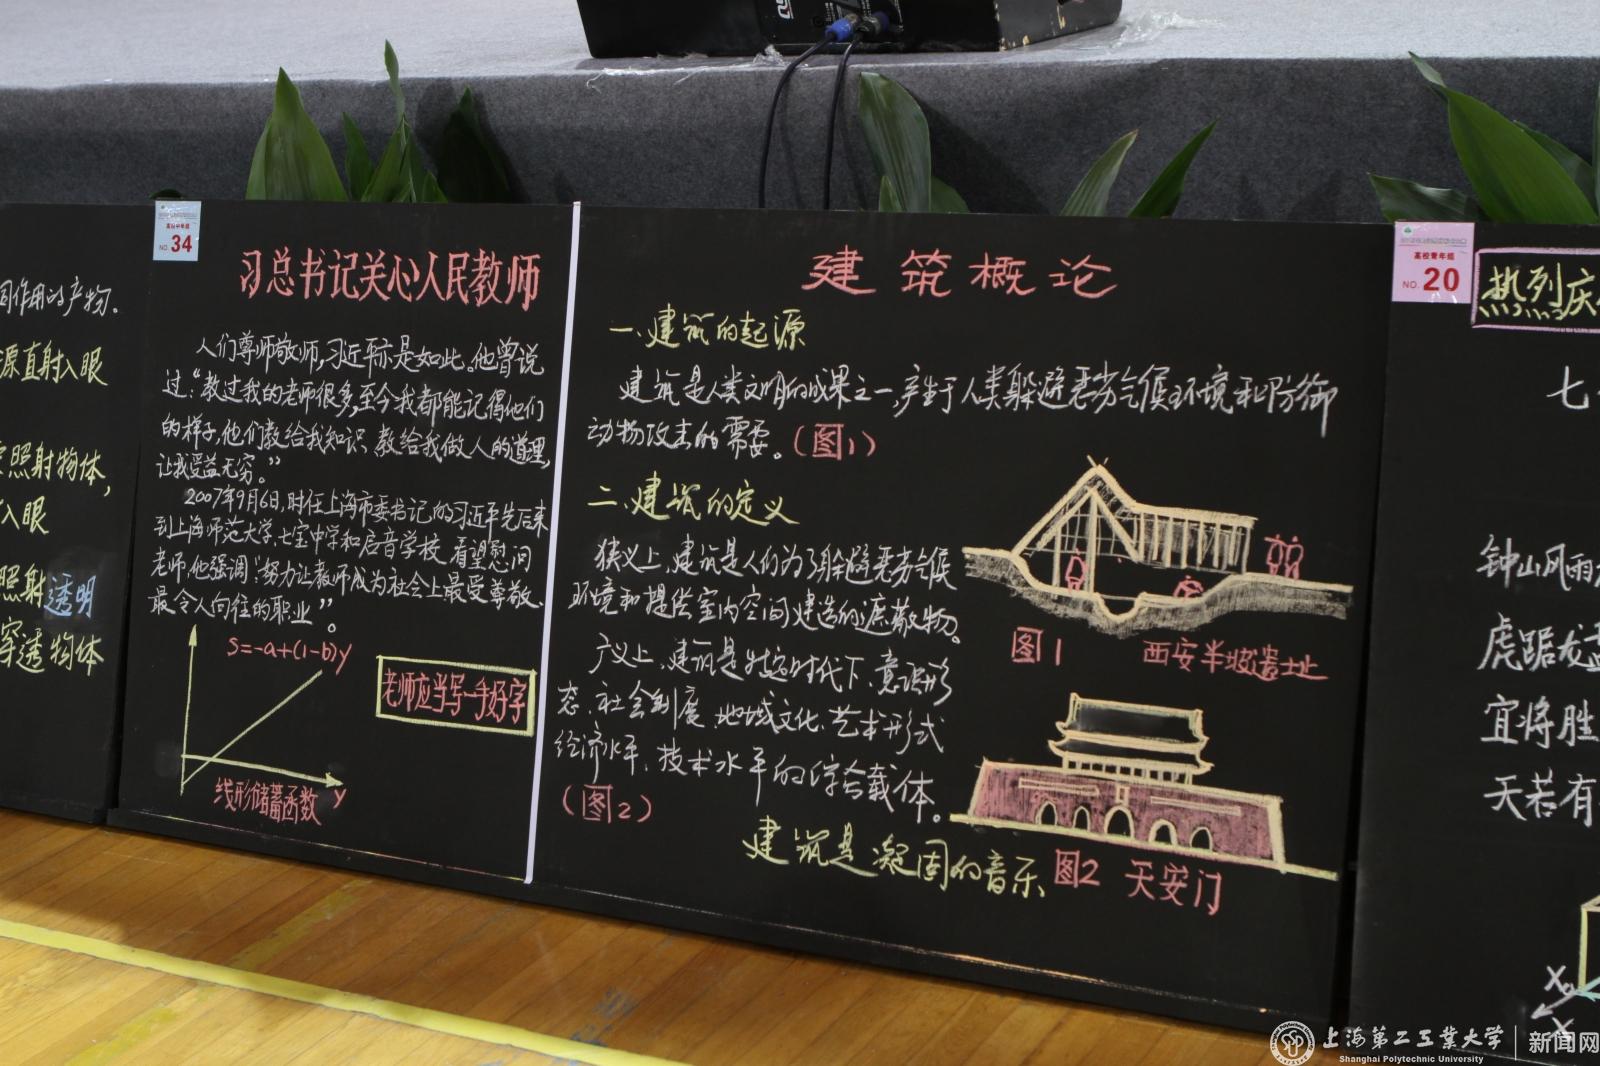 同作用的产物。
源直射入眼
照射物体,
入眼
照射透明
穿透物体
高校中年组
NO. 34
习总书记关心人民教师
人们尊师敬师,习近平亦是如此。他曾说
过:“教过我的老师很多,至今我都能记得他们
的样子,他们教给我知识、教给我做人的道理,
让我受益无穷。”
2007年9月6日,时任上海市委书记的习近平先后来
到上海师范大学、七宝中学和启音学校,看望慰问
老师,他强调:“努力让教师成为社会上最受尊敬、
最令人向往的职业”。
S=-a+(1-b)y
老师应当写一手好字
线形储蓄函数
y
建筑概论
一、建筑的起源
建筑是人类文明的成果之一,产生于人类躲避恶劣气候环境和防御
动物攻击的需要。(图1)
二、建筑的定义
狭义上,建筑是人们为了躲避恶劣气候
环境和提供室内空间建造的遮蔽物。
广义上,建筑是特定时代下,意识形
态、社会制度、地域文化、艺术形式
经济水平、技术水平的综合载体。
(图2)
图1 西安半坡遗址
建筑是凝固的音乐
图2 天安门
高校青年组
NO. 20
热烈庆
七
钟山风雨
虎踞龙盘
宜将胜
天若有
X
上海第二工业大学 新闻网
Shanghai Polytechnic University